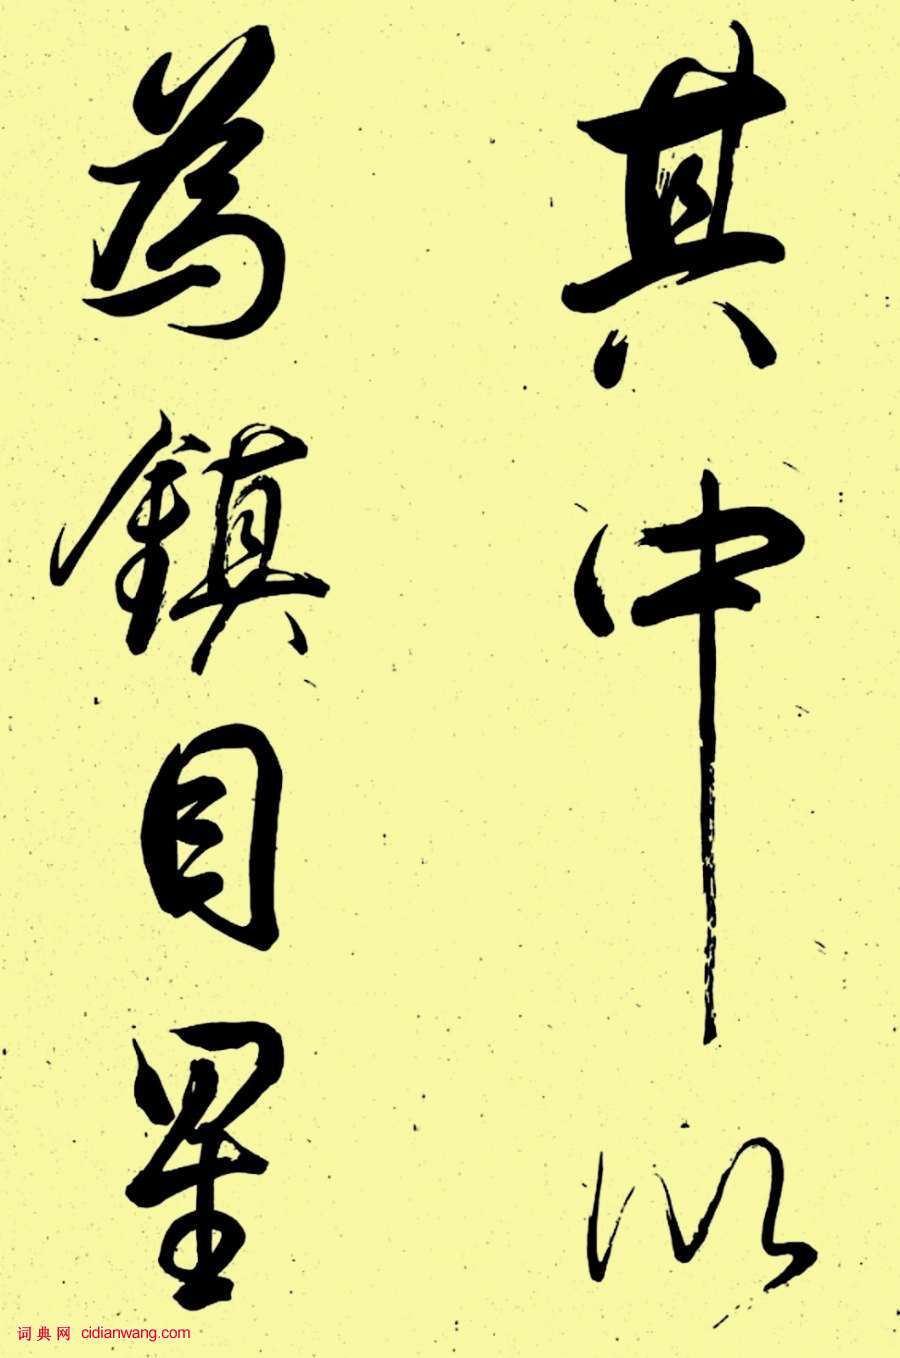 其中以
為鎮目星
词典网 cidianwang.com